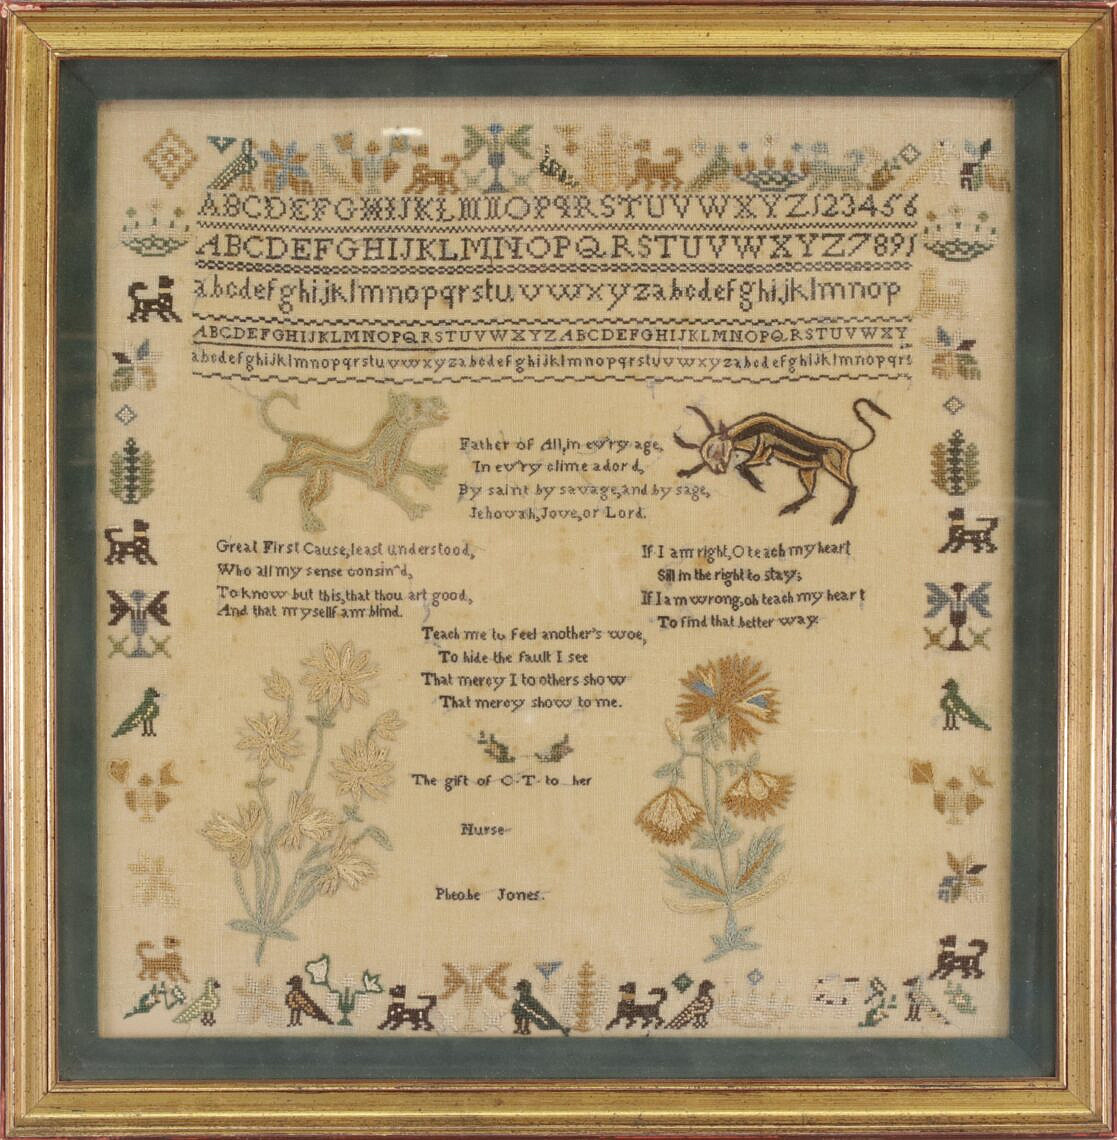 ABCDEFGHIJKLMNOPQRSTUVWXYZ123456
ABCDEFGHIJKLMNOPQRSTUVWXYZ7891
abcdefghijklmnopqrstuvwxyzabcdefghijklmnop
ABCDEFGHIJKLMNOPQRSTUVWXYZABCDEFGHIJKLMNOPQRSTUVWXY
abcdefghijklmnopqrstuvwxyzabcdefghijklmnopqrstuvwxyzabcdefghijklmnopqrs
Father of All,in ev'ry age,
In ev'ry clime adord,
By saint by savage,and by sage,
Jehovah,Jove,or Lord.
Great First Cause,least understood,
Who all my sense consin'd,
To know but this,that thou art good,
And that myself am blind.
If I am right,O teach my heart
Sill in the right to stay;
If I am wrong,oh teach my heart
To find that better way.
Teach me to feel another's woe,
To hide the fault I see
That mercy I to others show
That mercy show to me.
The gift of C·T· to her
Nurse
Pheobe Jones.